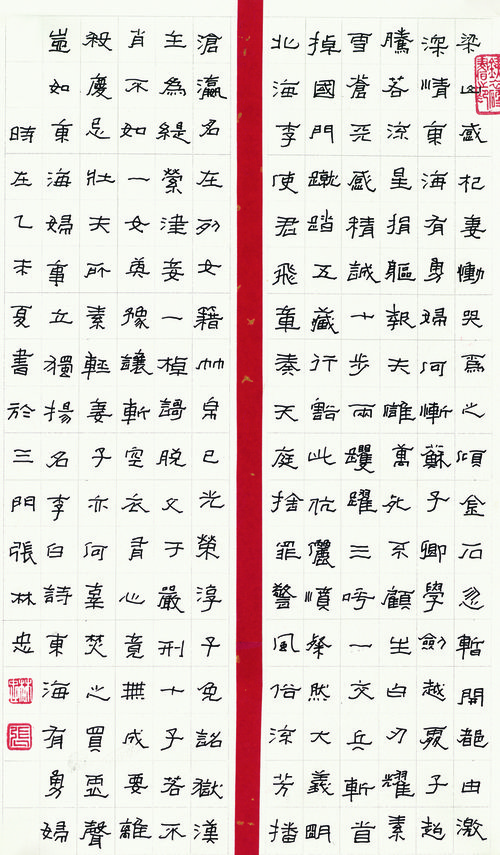 梁山感杞妻慟哭為之傾金石忽暫開都由激
深情東海有勇婦何慚蘇子卿學劍越處子超
騰若流星捐軀報夫讎萬死不顧生白刃耀素
雪蒼天感精誠十步兩躩躍三呼一交兵斬首
掉國門蹴踏五藏行豁此伉儷憤粲然大義明
北海李使君飛章奏天庭捨罪警風俗流芳播
滄瀛名在列女籍竹帛已光榮淳于免詔獄漢
主為緹縈津妾一棹謌脫父于嚴刑十子若不
肖不如一女英豫讓斬空衣有心竟無成要離
殺慶忌壯夫所素輕妻子亦何辜焚之買虛聲
豈如東海婦事立獨揚名李白詩東海有勇婦
時在乙未夏書於三門張林忠
張